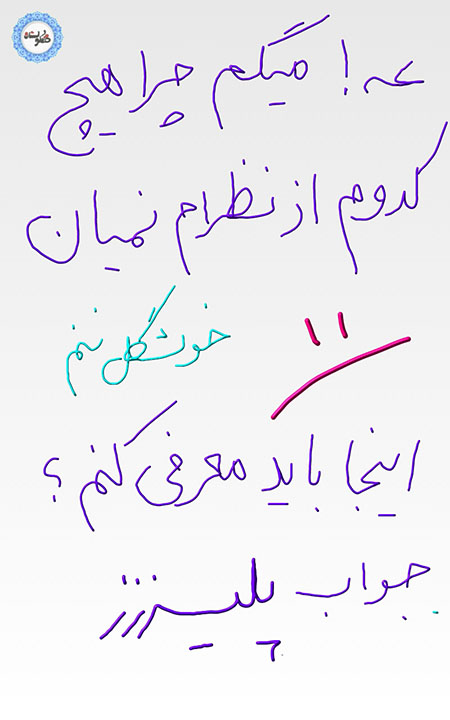 عه! میگم چرا هیچ
کدوم از نظرام نمیان
خوشگل ننم
اینجا باید معرفی کنم؟
جواب پلیززز